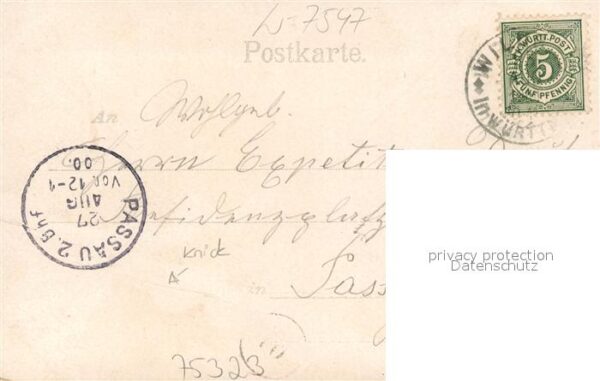 W-7547
Postkarte.
K. WÜRTT. POST
5
FÜNF PFENNIG
WI
In WÜRTT
An Wohlgeb.
Herrn Expetit
Residenzplatz
PASSAU 2. Bhf
27
AUG
VOR. 12-1
00.
Knick
in Pass
privacy protection
Datenschutz
75323